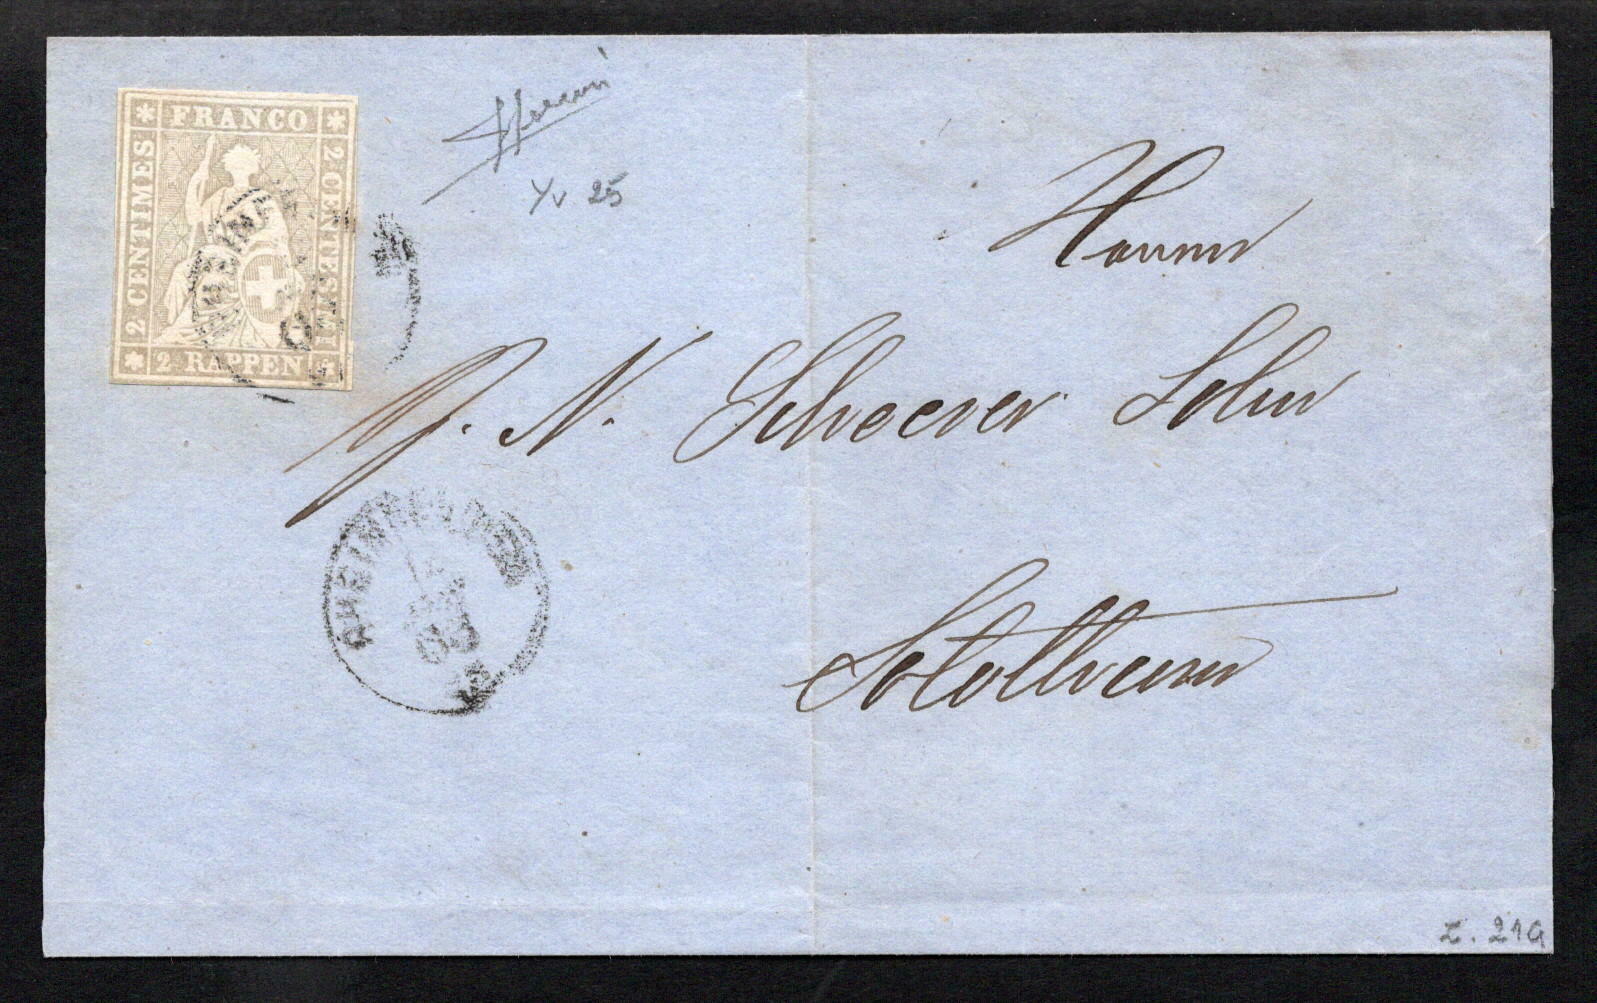 FRANCO
2 CENTIMES
2 CENTESIMI
2 RAPPEN
RHEINFE
Yv 25
Herrn
J. N. Scheerer Sohn
Solothurn
RHEINFELDEN
Z. 21G